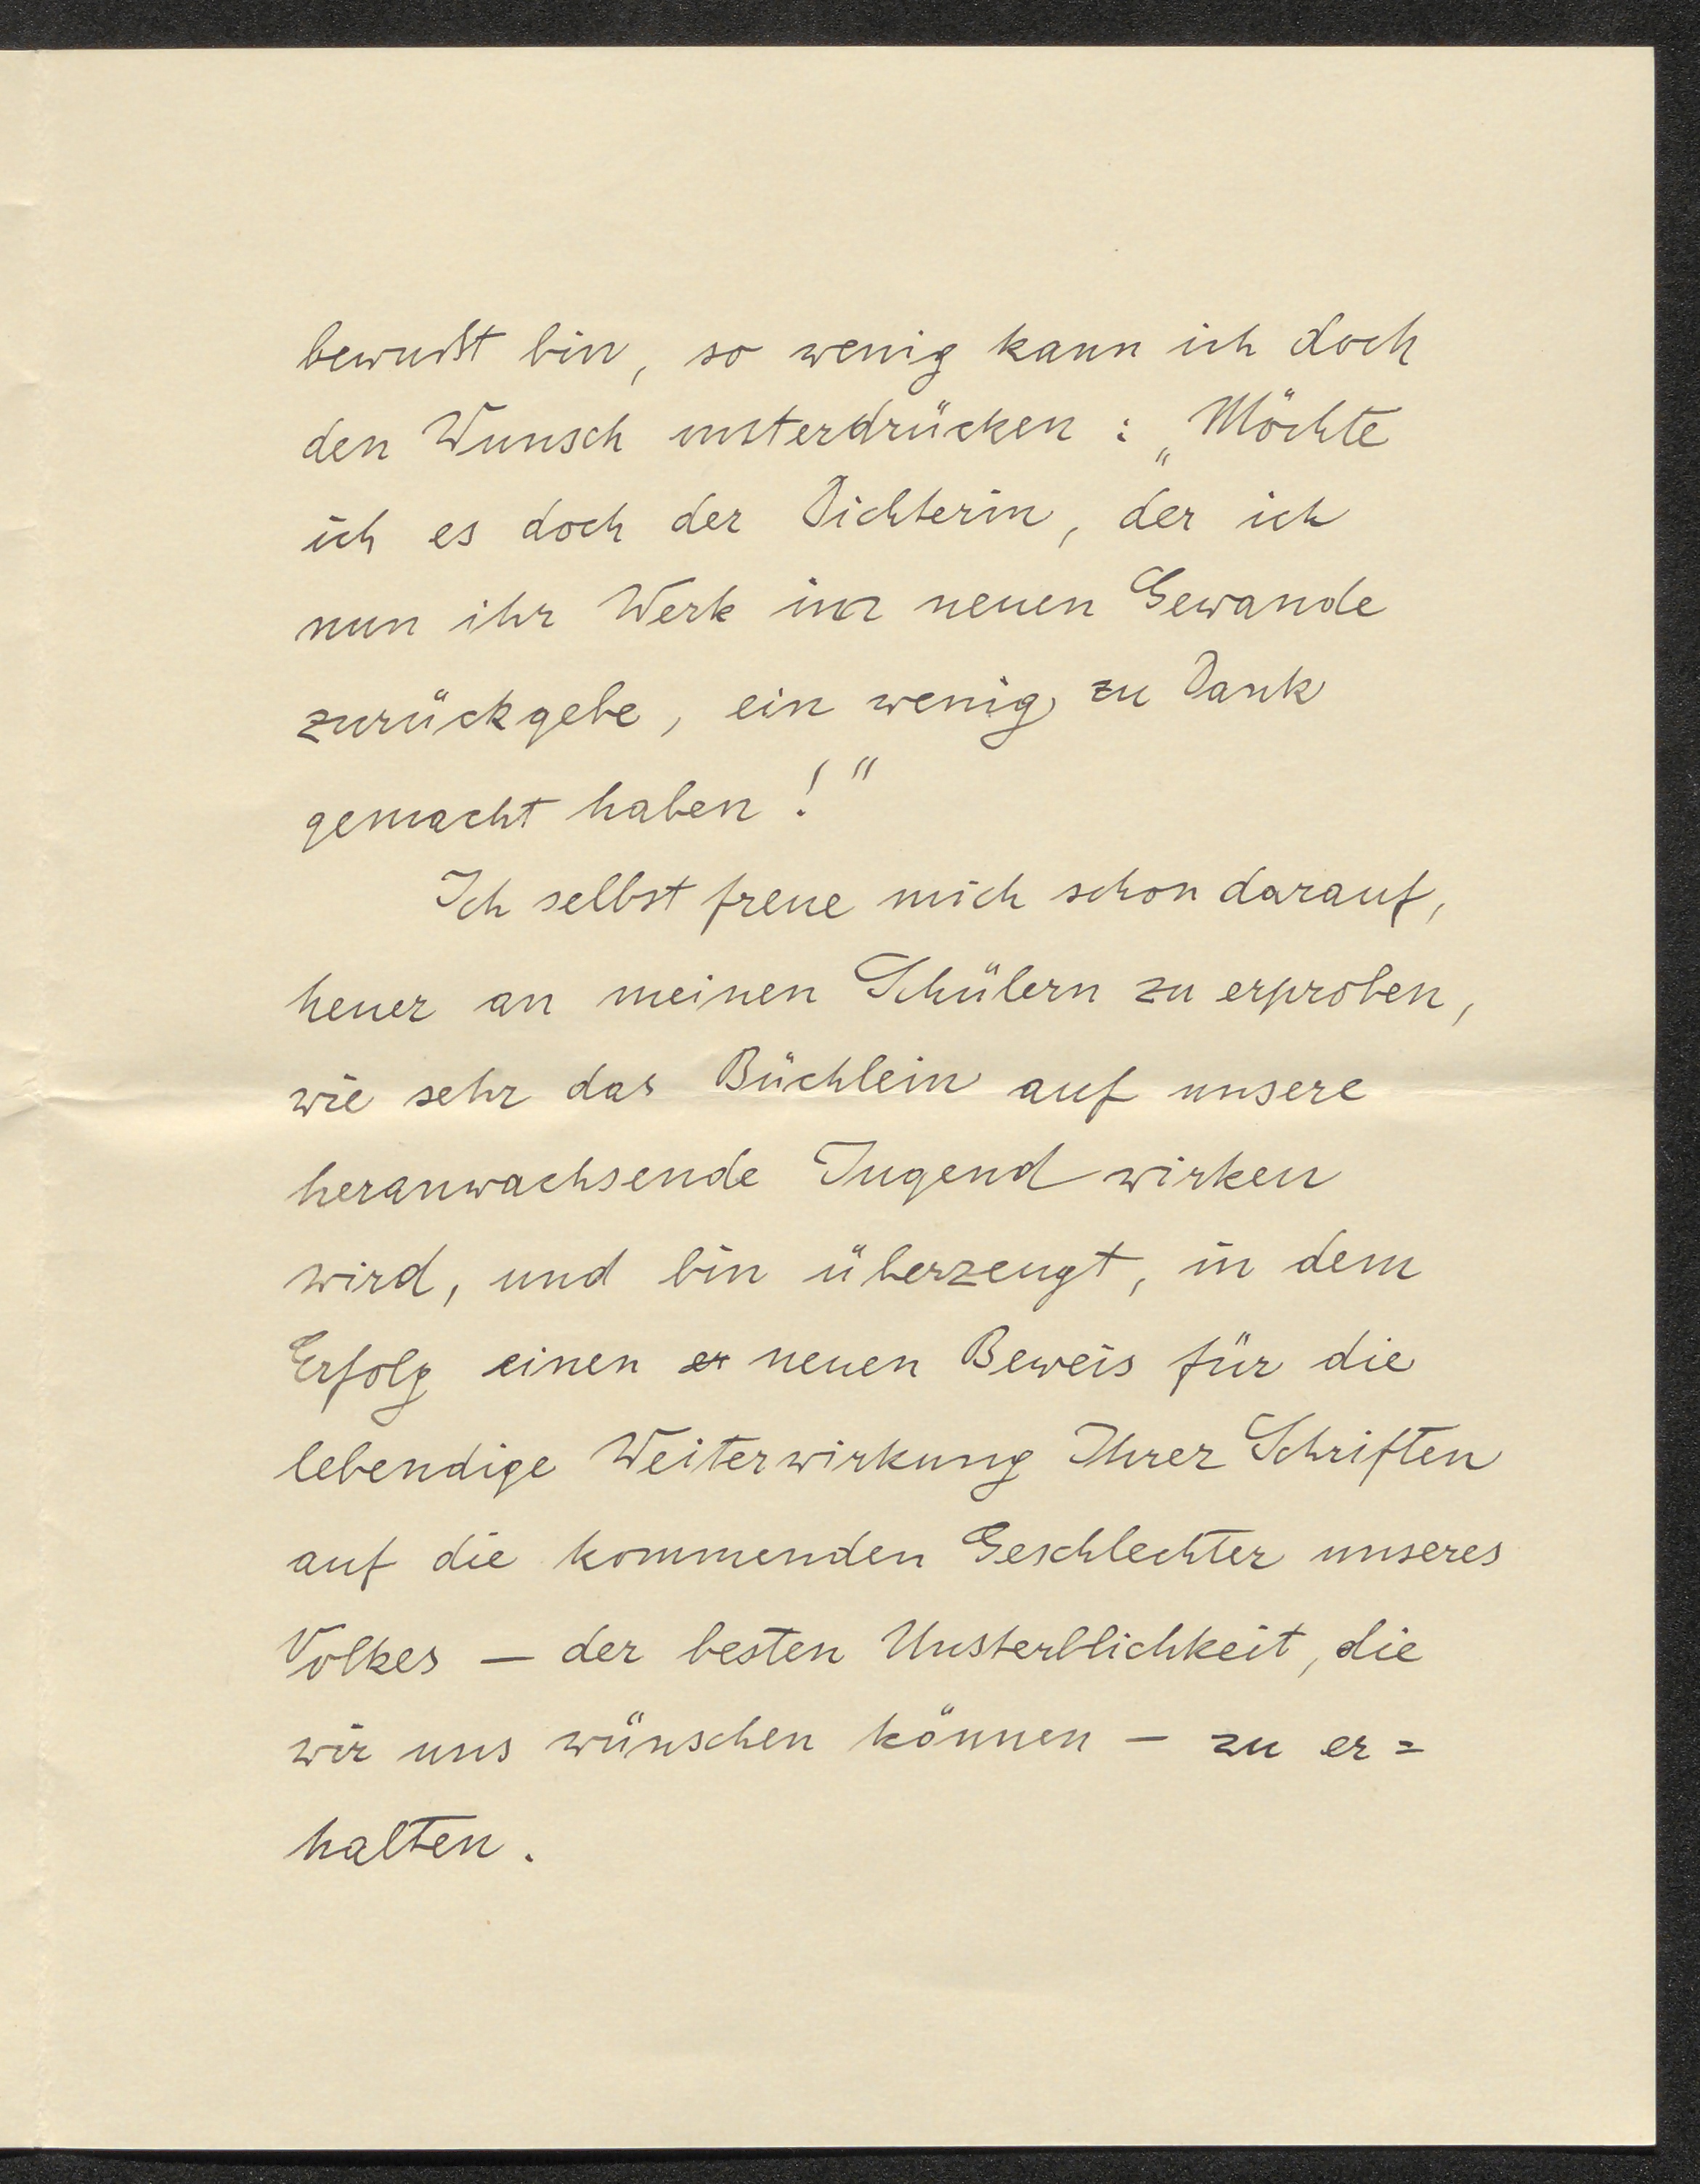 bewußt bin, so wenig kann ich doch
den Wunsch unterdrücken: „Möchte
ich es doch der Dichterin, der ich
nun ihr Werk im neuen Gewande
zurückgebe, ein wenig zu Dank
gemacht haben!“
Ich selbst freue mich schon darauf,
heuer an meinen Schülern zu erproben,
wie sehr das Büchlein auf unsere
heranwachsende Jugend wirken
wird, und bin überzeugt, in dem
Erfolg einen er neuen Beweis für die
lebendige Weiterwirkung Ihrer Schriften
auf die kommenden Geschlechter unseres
Volkes — der besten Unsterblichkeit, die
wir uns wünschen können — zu er=
halten.